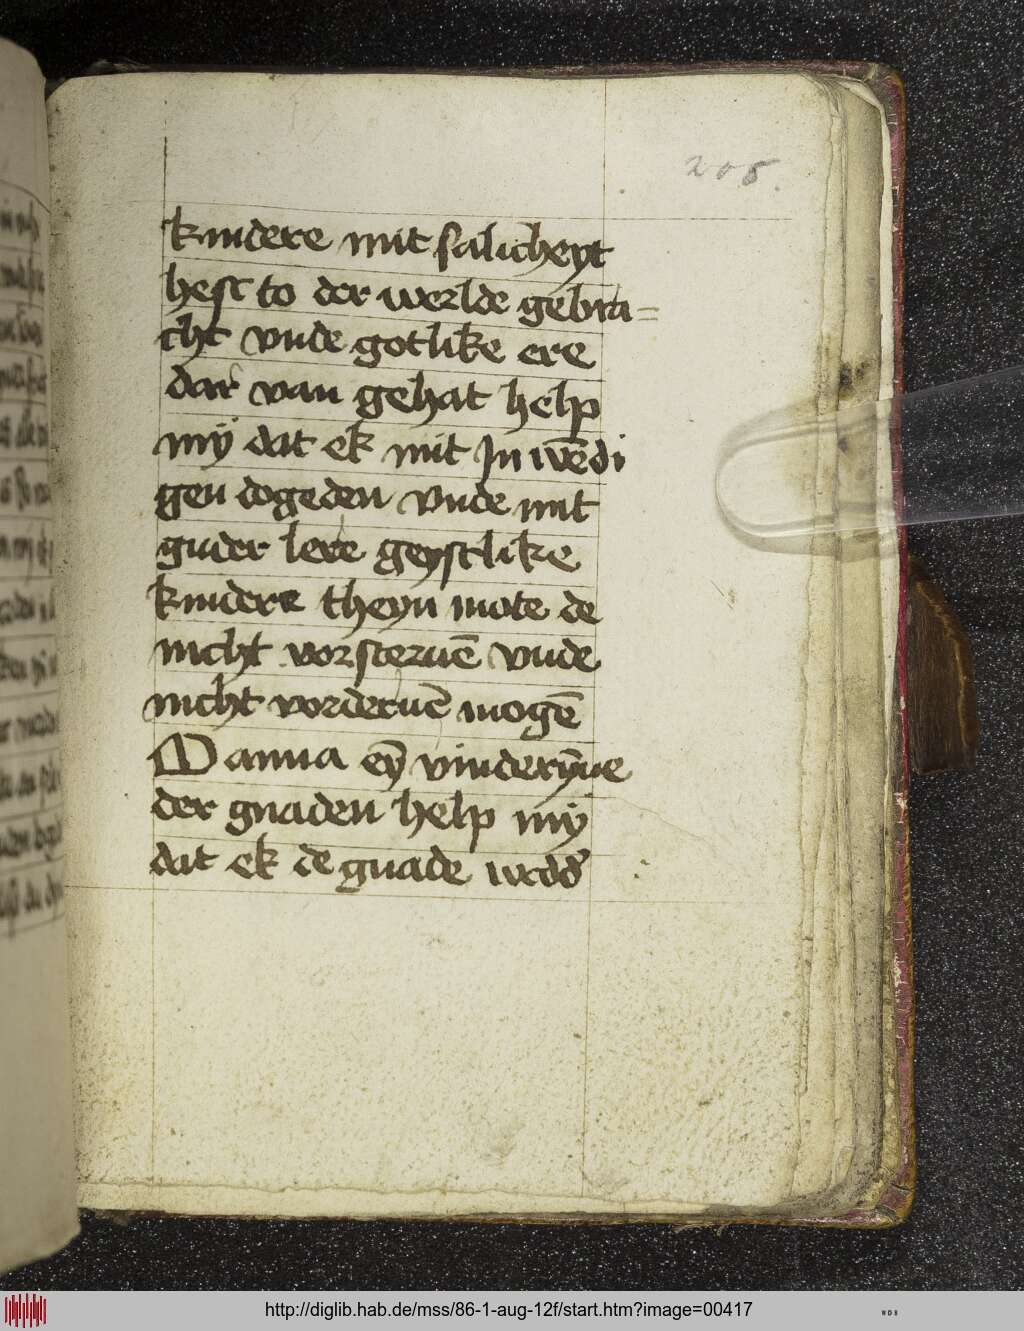 205.
kindere mit salicheyt
hest to der werlde gebra=
cht vnde gotlike ere
dar van gehat help
mÿ dat ek mit In wēdi
gen dogeden vnde mit
guder lere geystlike
kindere theyn mote de
nicht vorsteruē vnde
nicht vorderuē mogē
Danna eÿ vinderȳne
der gnaden help mÿ
dat ek de gnade wedd
http://diglib.hab.de/mss/86-1-aug-12f/start.htm?image=00417